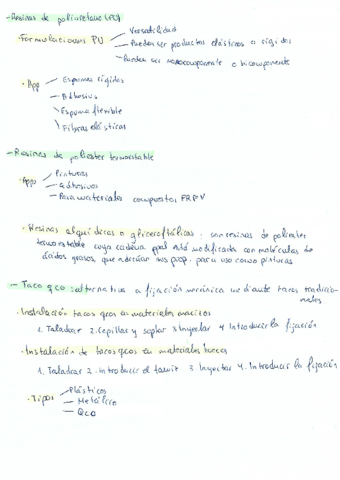 - Resinas de poliuretano (PU)
· Formulaciones PU
- Versatilidad
- Pueden ser productos elásticos o rígidos
- Pueden ser monocomponente o bicomponente
· App
- Espumas rígidas
- Adhesivos
- Espuma flexible
- Fibras elásticas
- Resinas de poliester termoestable
· App
- Pinturas
- Adhesivos
- Para materiales compuestos FRPV
· Resinas alquídicas o gliceroftálicas: son resinas de poliester
termoestable cuya cadena ppal está modificada con moléculas de
ácidos grasos, que adecúan sus prop. para uso como pinturas
- Taco qco: alternativa a fijación mecánica mediante tacos tradicio-
nales
· Instalación tacos qcos en materiales macizos
1. Taladrar 2. Cepillar y soplar 3. Inyectar 4. Introducir la fijación
· Instalación de tacos qcos en materiales huecos
1. Taladrar 2. Introducir el tamiz 3. Inyectar 4. Introducir la fijación
· Tipos
- Plásticos
- Metálico
- Qco